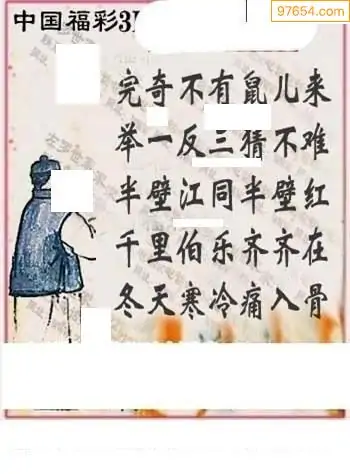 中国福彩3
97654.com
完奇不有鼠儿来
举一反三猜不难
半壁江同半壁红
千里伯乐齐齐在
冬天寒冷痛入骨